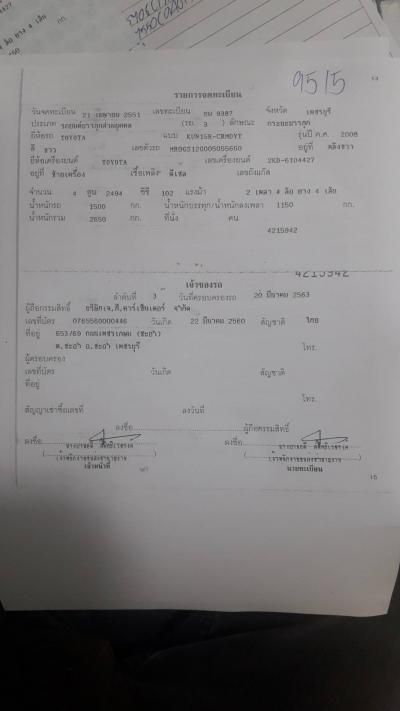 95/5
14
รายการจดทะเบียน
วันจดทะเบียน 21 เมษายน 2551 เลขทะเบียน บม 9387 จังหวัด เพชรบุรี
ประเภท รถยนต์บรรทุกส่วนบุคคล (รย. 3 ) ลักษณะ กระบะบรรทุก
ยี่ห้อรถ TOYOTA แบบ KUN15R-CRMDYT รุ่นปี ค.ศ. 2008
สี ขาว เลขตัวรถ MR0GS120005055660 อยู่ที่ คลังขวา
ยี่ห้อเครื่องยนต์ TOYOTA เลขเครื่องยนต์ 2KD-6104427
อยู่ที่ ข้างเครื่อง เชื้อเพลิง ดีเซล เลขถังแก๊ส
จำนวน 4 สูบ 2494 ซีซี 102 แรงม้า 2 เพลา 4 ล้อ ยาง 4 เส้น
น้ำหนักรถ 1500 กก. น้ำหนักบรรทุก/น้ำหนักลงเพลา 1150 กก.
น้ำหนักรวม 2650 กก. ที่นั่ง คน
4215942
4215942
เจ้าของรถ
ลำดับที่ 3 วันที่ครอบครองรถ 20 มีนาคม 2563
ผู้ถือกรรมสิทธิ์ บริษัทเจ.ที.คาร์เซ็นเตอร์ จำกัด
เลขที่บัตร 0765560000446 วันเกิด 22 มีนาคม 2560 สัญชาติ ไทย
ที่อยู่ 653/69 ถนนเพชรเกษม (ชะอำ)
ต.ชะอำ อ.ชะอำ เพชรบุรี โทร.
ผู้ครอบครอง
เลขที่บัตร วันเกิด สัญชาติ
ที่อยู่
โทร.
สัญญาเช่าซื้อเลขที่ ลงวันที่
ลงชื่อ ผู้ถือกรรมสิทธิ์
ลงชื่อ ลงชื่อ
เจ้าหน้าที่ นายทะเบียน
15